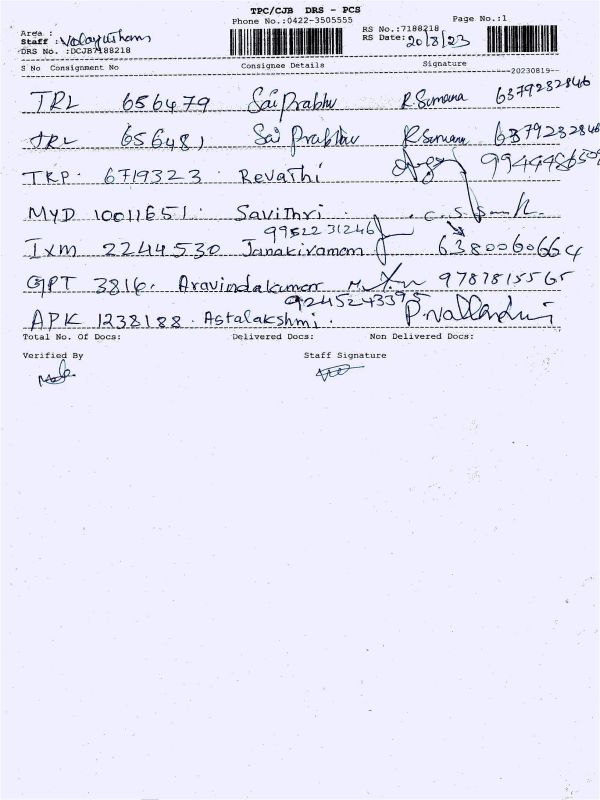 TPC/CJB DRS - PCS
Phone No.:0422-3505555 Page No.:1
Area :
Staff : Velayutham
DRS No. :DCJB7188218
RS No.:7188218
RS Date: 20/8/23
S No Consignment No Consignee Details Signature
20230819
TRL 656479 Sai Prabhu R.Sumana 6379232846
TRL 656481 Sai Prabhu R.Sumana 6379232846
TRP. 6719323 Revathi
MYD 10011651. Savithri . C.S.
9952231246
Ixm 2244530 Janakiramam 6380060664
GPT 3816. Aravindakumar 9787815565
9245243395
APK 1238188. Astalakshmi. P.Valland
Total No. Of Docs: Delivered Docs: Non Delivered Docs:
Verified By Staff Signature